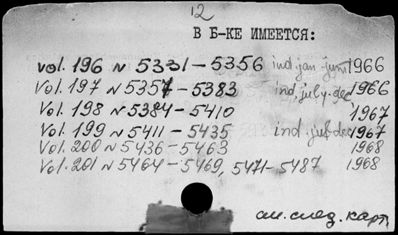 12
В Б-КЕ ИМЕЕТСЯ:
vol. 196 N 5331 – 5356 ind. jan-juni 1966
Vol. 197 N 5357 – 5383 ind. july-dec 1966
Vol. 198 N 5384 – 5410 1967
Vol. 199 N 5411 – 5435 ind. dec 1967
Vol. 200 N 5436 – 5463 1968
Vol. 201 N 5464 – 5469, 5471 – 5487 1968
см. след. карт.